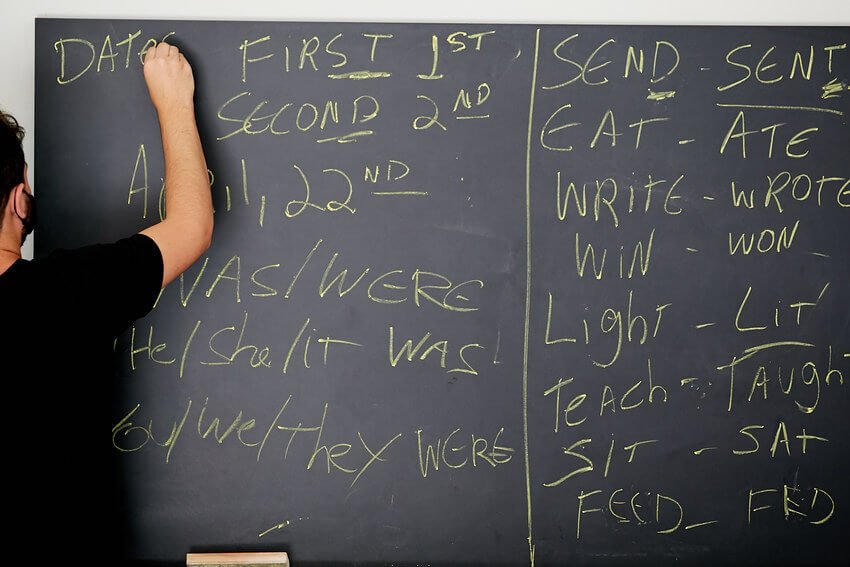 DATES FIRST 1ST
SECOND 2ND
April, 22ND
WAS/WERE
He/She/iT WAS
ou/we/they WERE
SEND - SENT
EAT - ATE
WRITE - WROTE
WIN - WON
LighT - LiT
TEACh - TAUghT
SiT - SAT
FEED - FED